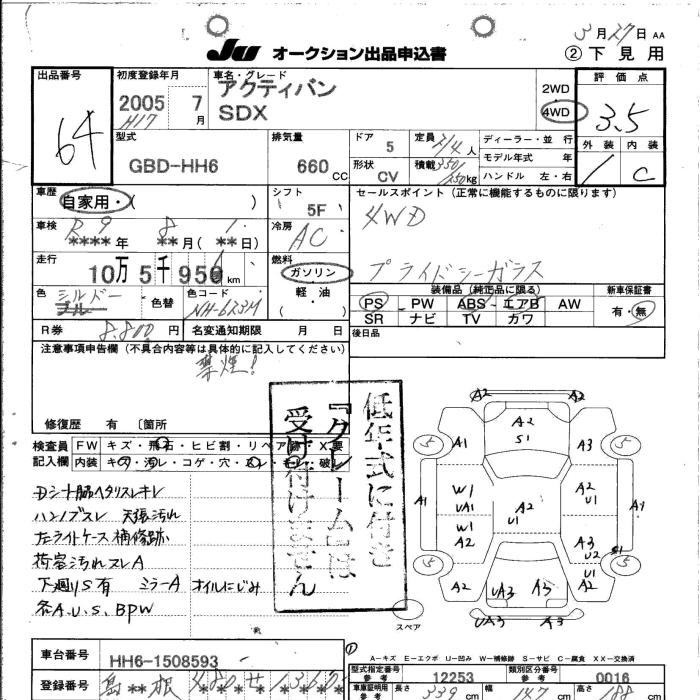 3月27日 AA
JU オークション出品申込書
② 下見用
出品番号
64
初度登録年月
2005 7月
H17
車名・グレード
アクティバン
SDX
2WD
4WD
評価点
3.5
外装 内装
1 C
型式
GBD-HH6
排気量
660 CC
ドア 5
形状 CV
定員 2/4人
積載 350/250kg
ディーラー・並行
モデル年式 年
ハンドル 左・右
車歴
自家用・( )
シフト
5F
セールスポイント(正常に機能するものに限ります)
4WD
プライバシーガラス
車検
R9 8 1
****年 **月(**日)
冷房
AC
走行
10万5千950km
燃料
ガソリン
軽・油
( )
色
シルバー
ブルー
色替
色コード
NH-623M
装備品(純正品に限る)
PS PW ABS エアB AW
SR ナビ TV カワ
新車保証書
有・無
R券 8,800円
名変通知期限 月 日
後日品
注意事項申告欄(不具合内容等は具体的に記入してください)
禁煙!
修復歴 有 〔箇所
低年式に付き
『クレーム』は
受け付けません
検査員
記入欄
FW キズ・飛石・ヒビ割・リペア跡・X要
内装 キズ・汚レ・コゲ・穴・スレ・キレ・破レ
Dシート脇ヘタリスレキレ
ハンドブスレ 天張汚れ
左ライトケース補修跡
荷室汚れスレA
下廻りS有 ミラーA オイルにじみ
各A.U.S.BPW
A2
5
A1
A2
S1
A3
5
A1
W1
UA1
W1
A2
A2
U1
A2
U1
A3
U2
S1
A4
5
A2
UA3
A3
U1
A2
5
スペア
UA3
A3
A-キズ E-エクボ U-凹み W-補修跡 S-サビ C-腐食 XX-交換済
車台番号
HH6-1508593
登録番号
島**根 480 せ 1360
型式指定番号
参考
12253
類別区分番号
参考
0016
車庫証明用
参考
長さ 339cm
幅 147cm
188cm